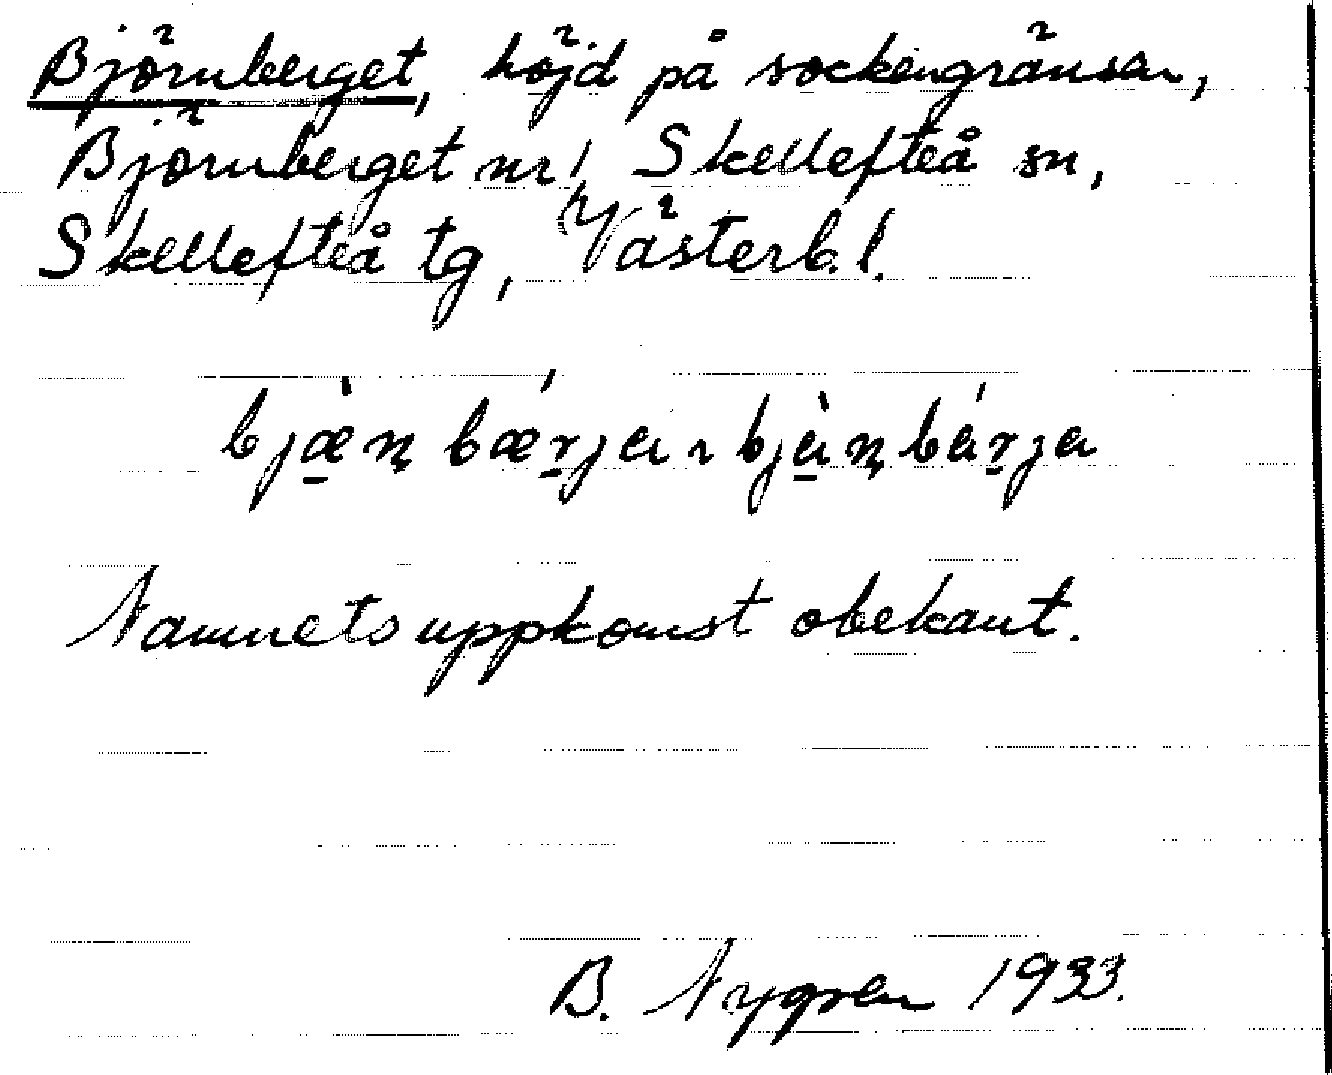 Björnberget, höjd på sockengränsen,
Björnberget nr 1 Skellefteå sn,
Skellefteå tg, Västerb. l.
bjæ̀ṇbærja ı bjàṇbárja
Namnets uppkomst obekant.
B. Nygren 1933.